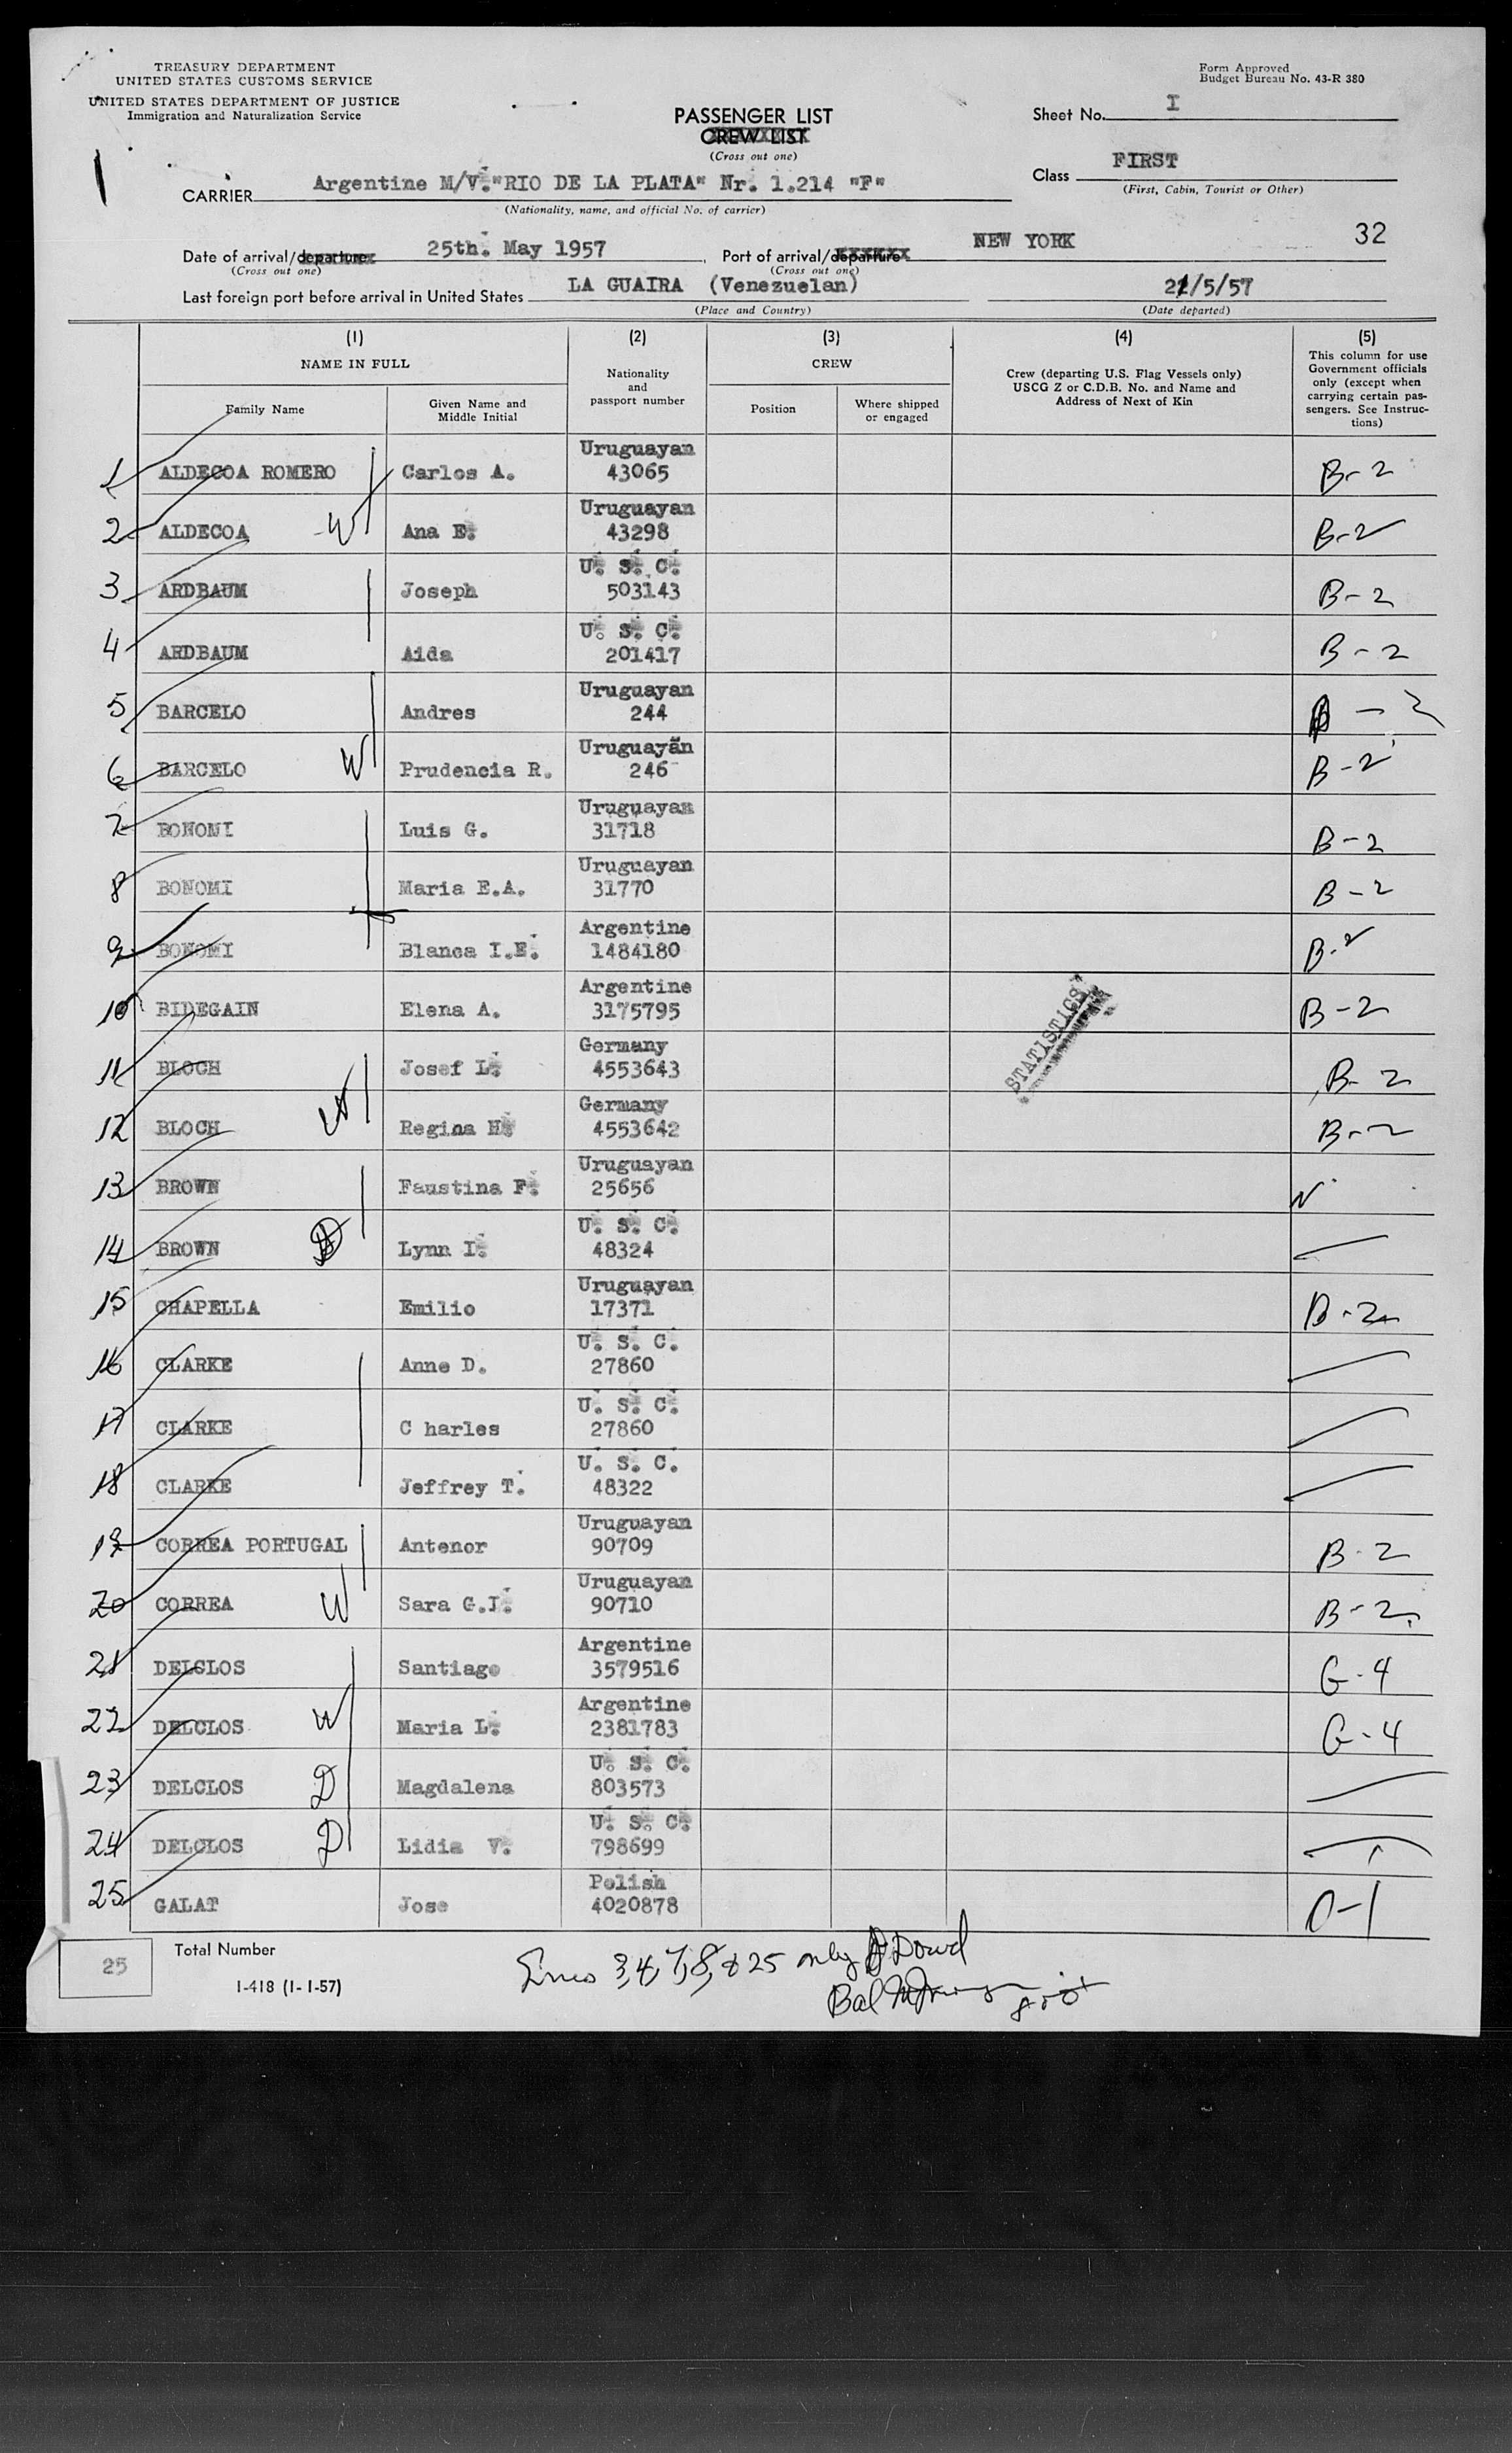 TREASURY DEPARTMENT
UNITED STATES CUSTOMS SERVICE
UNITED STATES DEPARTMENT OF JUSTICE
Immigration and Naturalization Service
Form Approved
Budget Bureau No. 43-R 380
PASSENGER LIST
CREW LIST
(Cross out one)
Sheet No. I
Class FIRST
(First, Cabin, Tourist or Other)
CARRIER Argentine M/V."RIO DE LA PLATA" Nr. 1.214 "F"
(Nationality, name, and official No. of carrier)
32
Date of arrival/departure 25th. May 1957, Port of arrival/departure NEW YORK
(Cross out one) (Cross out one)
Last foreign port before arrival in United States LA GUAIRA (Venezuelan) /5/57
(Place and Country) (Date departed)
(1) (2) (3) (4) (5)
NAME IN FULL
Family Name
Given Name and Middle Initial
Nationality and passport number
CREW
Position
Where shipped or engaged
Crew (departing U.S. Flag Vessels only)
USCG Z or C.D.B. No. and Name and
Address of Next of Kin
This column for use
Government officials
only (except when
carrying certain pas-
sengers. See Instruc-
tions)
1 ALDECOA ROMERO Carlos A. Uruguayan 43065 B-2
2 ALDECOA W Ana E. Uruguayan 43298 B-2
3 ARDBAUM Joseph U. S. C. 503143 B-2
4 ARDBAUM Aida U. S. C. 201417 B-2
5 BARCELO Andres Uruguayan 244 B-2
6 BARCELO W Prudencia R. Uruguayan 246 B-2
7 BONOMI Luis G. Uruguayan 31718 B-2
8 BONOMI Maria E.A. Uruguayan 31770 B-2
9 BONOMI Blanca I.E. Argentine 1484180 B-2
10 BIDEGAIN Elena A. Argentine 3175795 B-2
STATISTICS
11 BLOCH Josef L. Germany 4553643 B-2
12 BLOCH W Regina H. Germany 4553642 B-2
13 BROWN Faustina F. Uruguayan 25656 N
14 BROWN D Lynn I. U. S. C. 48324
15 CHAPELLA Emilio Uruguayan 17371 B-2
16 CLARKE Anne D. U. S. C. 27860
17 CLARKE C harles U. S. C. 27860
18 CLARKE Jeffrey T. U. S. C. 48322
19 CORREA PORTUGAL Antenor Uruguayan 90709 B-2
20 CORREA W Sara G.I. Uruguayan 90710 B-2
21 DELCLOS Santiago Argentine 3579516 G-4
22 DELCLOS W Maria L. Argentine 2381783 G-4
23 DELCLOS D Magdalena U. S. C. 803573
24 DELCLOS D Lidia V. U. S. C. 798699
25 GALAT Jose Polish 4020878 O-1
25 Total Number
I-418 (1-1-57)
Lines 3, 4, 7, 8, & 25 only Dowd
Bal